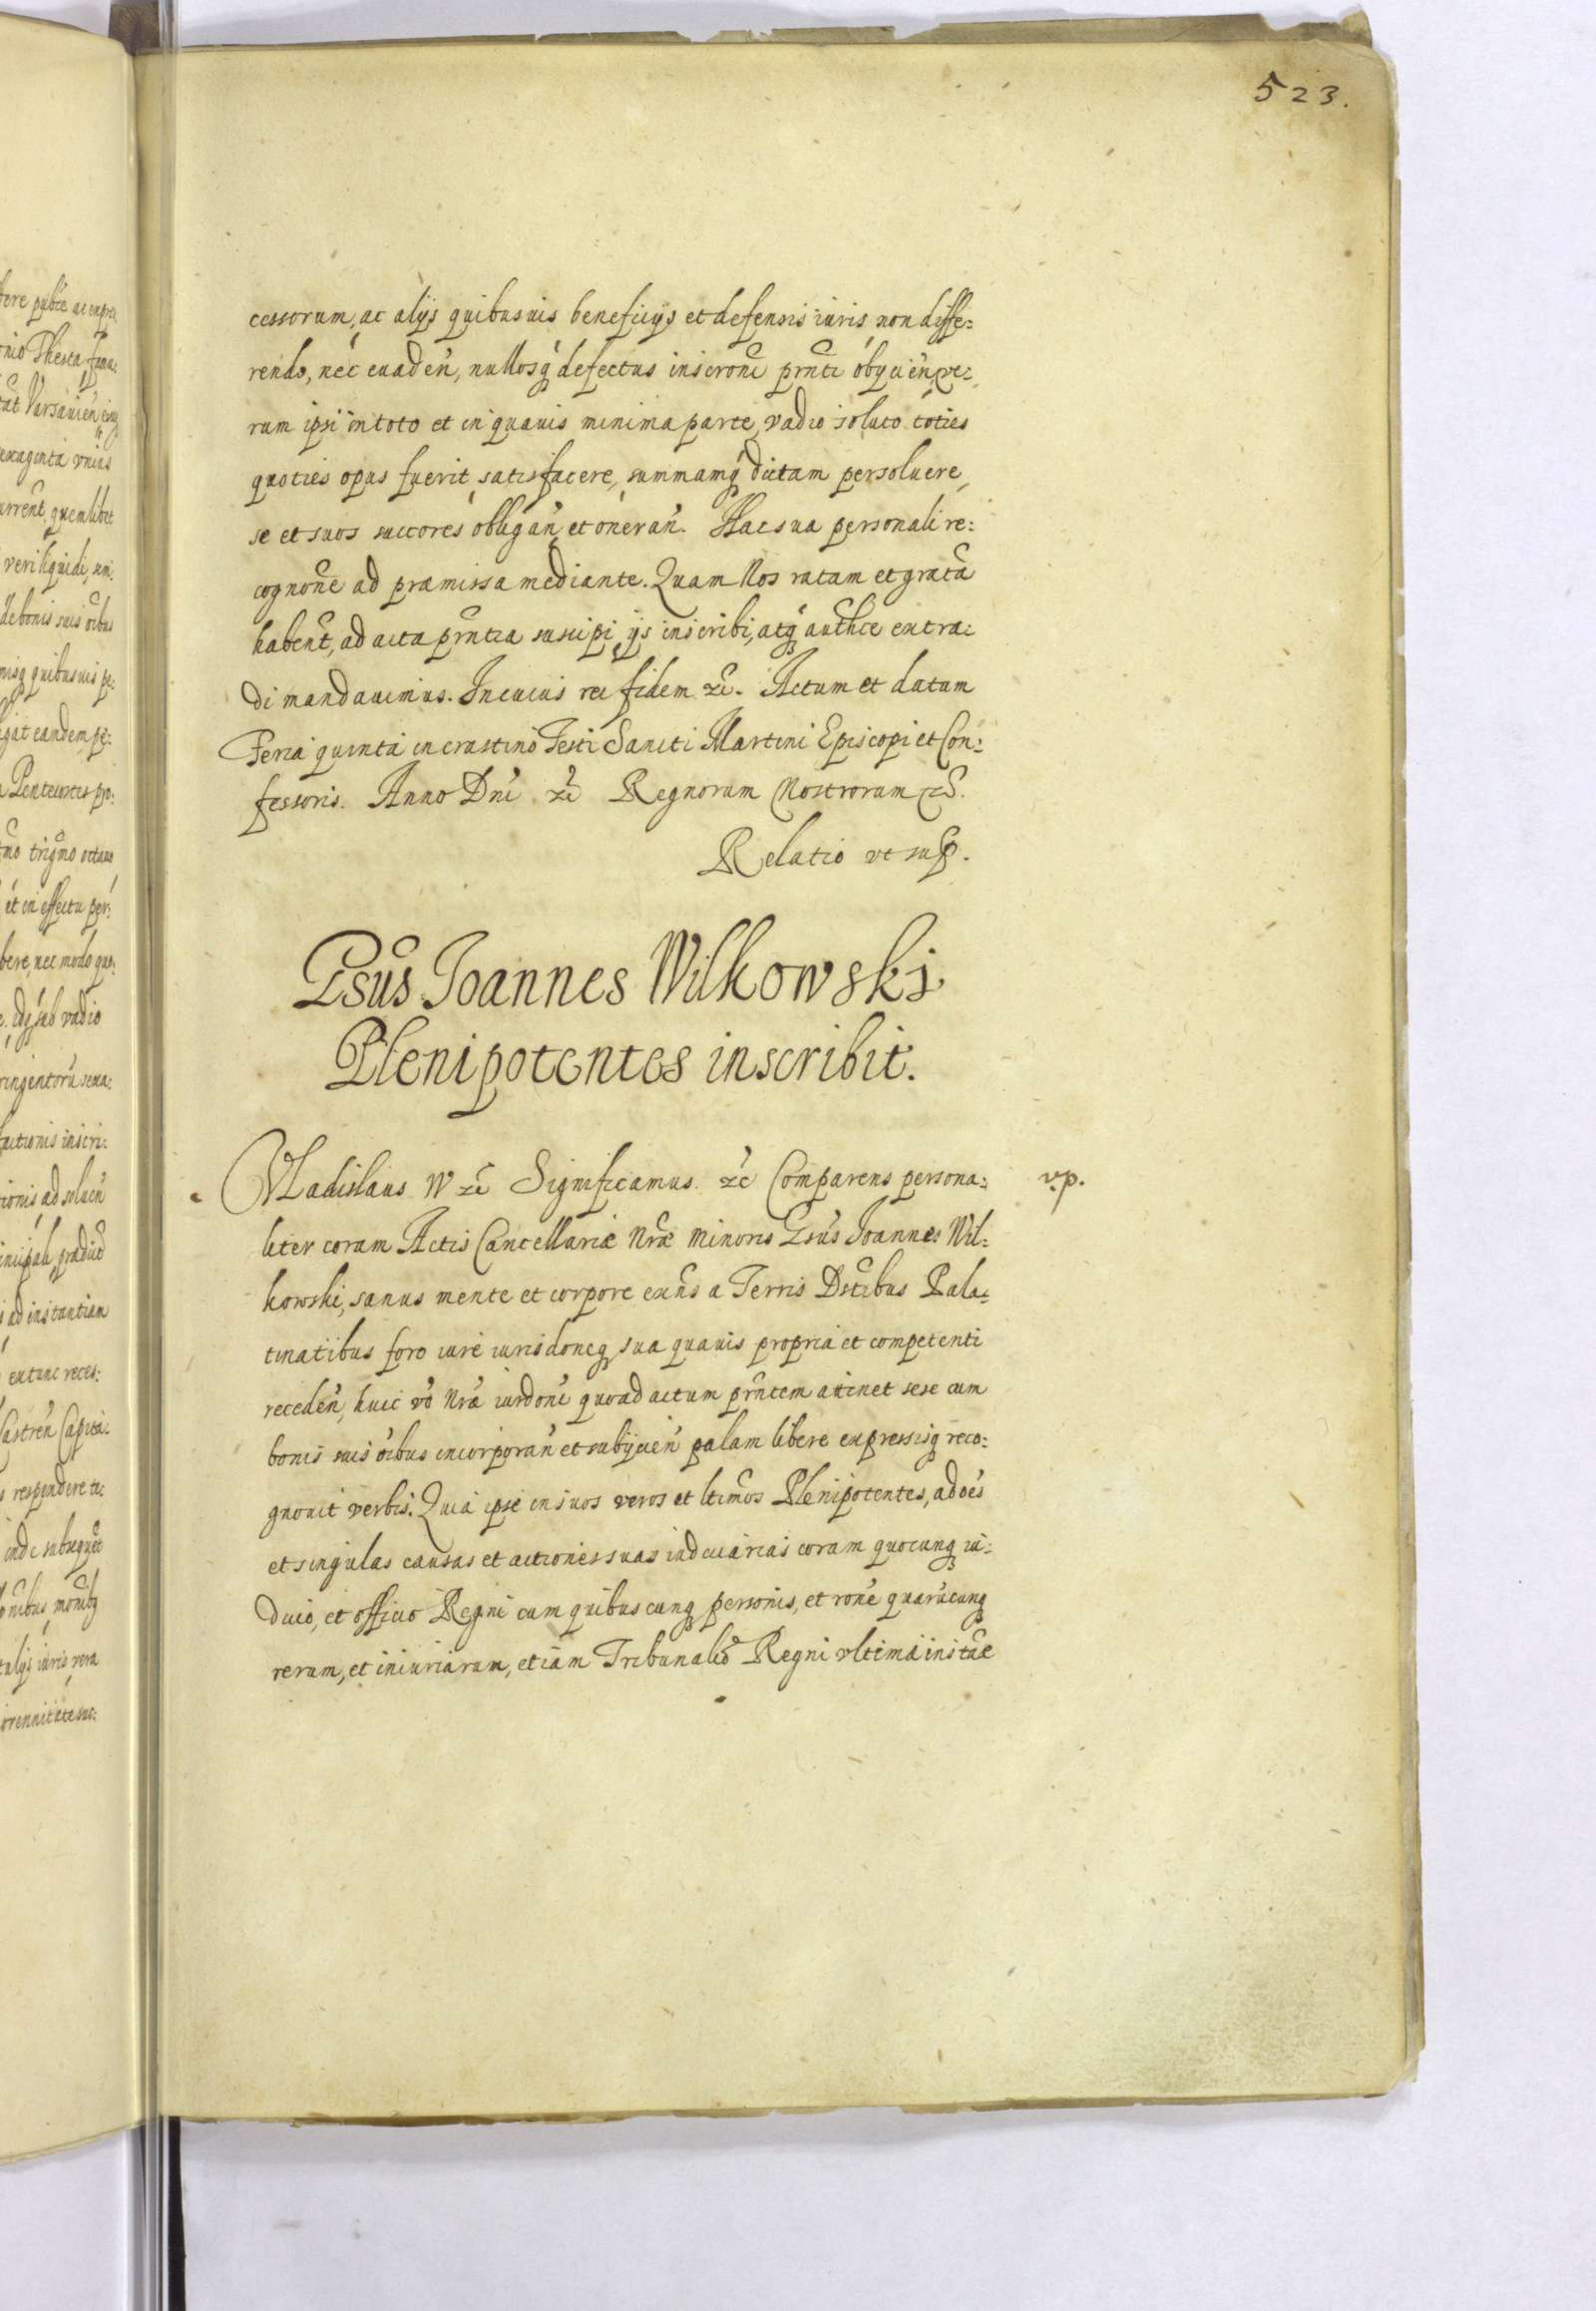 523.
cessorum, ac alijs quibusuis beneficijs et defensis iuris non diffe:
rendo, nec euaden̄, nullosq́ defectus inscronī prn̄ti obijcien̄, ve:
rum ipsi in toto et in quauis minima parte, vadio soluto toties
quoties opus fuerit satisfacere, summamq́ dictam persoluere,
se et suos succores obligan̄ et oneran̄. Hac sua personali re:
cognone ad præmissa mediante. Quam Nos ratam et gratā
haben̄t, ad acta prn̄tia suscipi, ijs inscribi, atq́authce extra:
di mandauimus. In cuius rei fidem ec̄. Actum et datum
Feria quinta in crastino Festi Sancti Martini Episcopi et Con:
fessoris. Anno Dnī ec̄ Regnorum Nostrorum ec̄.
Relatio vt sup.
Gsūs Ioannes Wilkowski
Plenipotentes inscribit.
VLadislaus IV ec̄ Significamus ec̄ Comparens persona:
v.p.
liter coram Actis Cancellariæ Nrǣ Minoris Gsūs Ioannes Wil:
kowski, sanus mente et corpore exn̄s a Terris Dstībus Pala:
tinatibus foro iure iurisdoneq́ sua quauis propria et competenti
receden̄, huic vō Nrǣ iurdonī quoad actum prn̄tem attinet sese cum
bonis suis oībus incorporan̄ et subijcien̄ palam libere expressisq́ reco:
gnouit verbis. Quia ipse in suos veros et ltimōs Plenipotentes, ad oēs
et singulas causas et actiones suas iudiciarias coram quocunq́ iu:
dicio, et officio Regni cum quibuscunq́ personis, et ronē quarūcunq́
rerum, et iniuriarum, etiam Tribunalis Regni vltima instāe